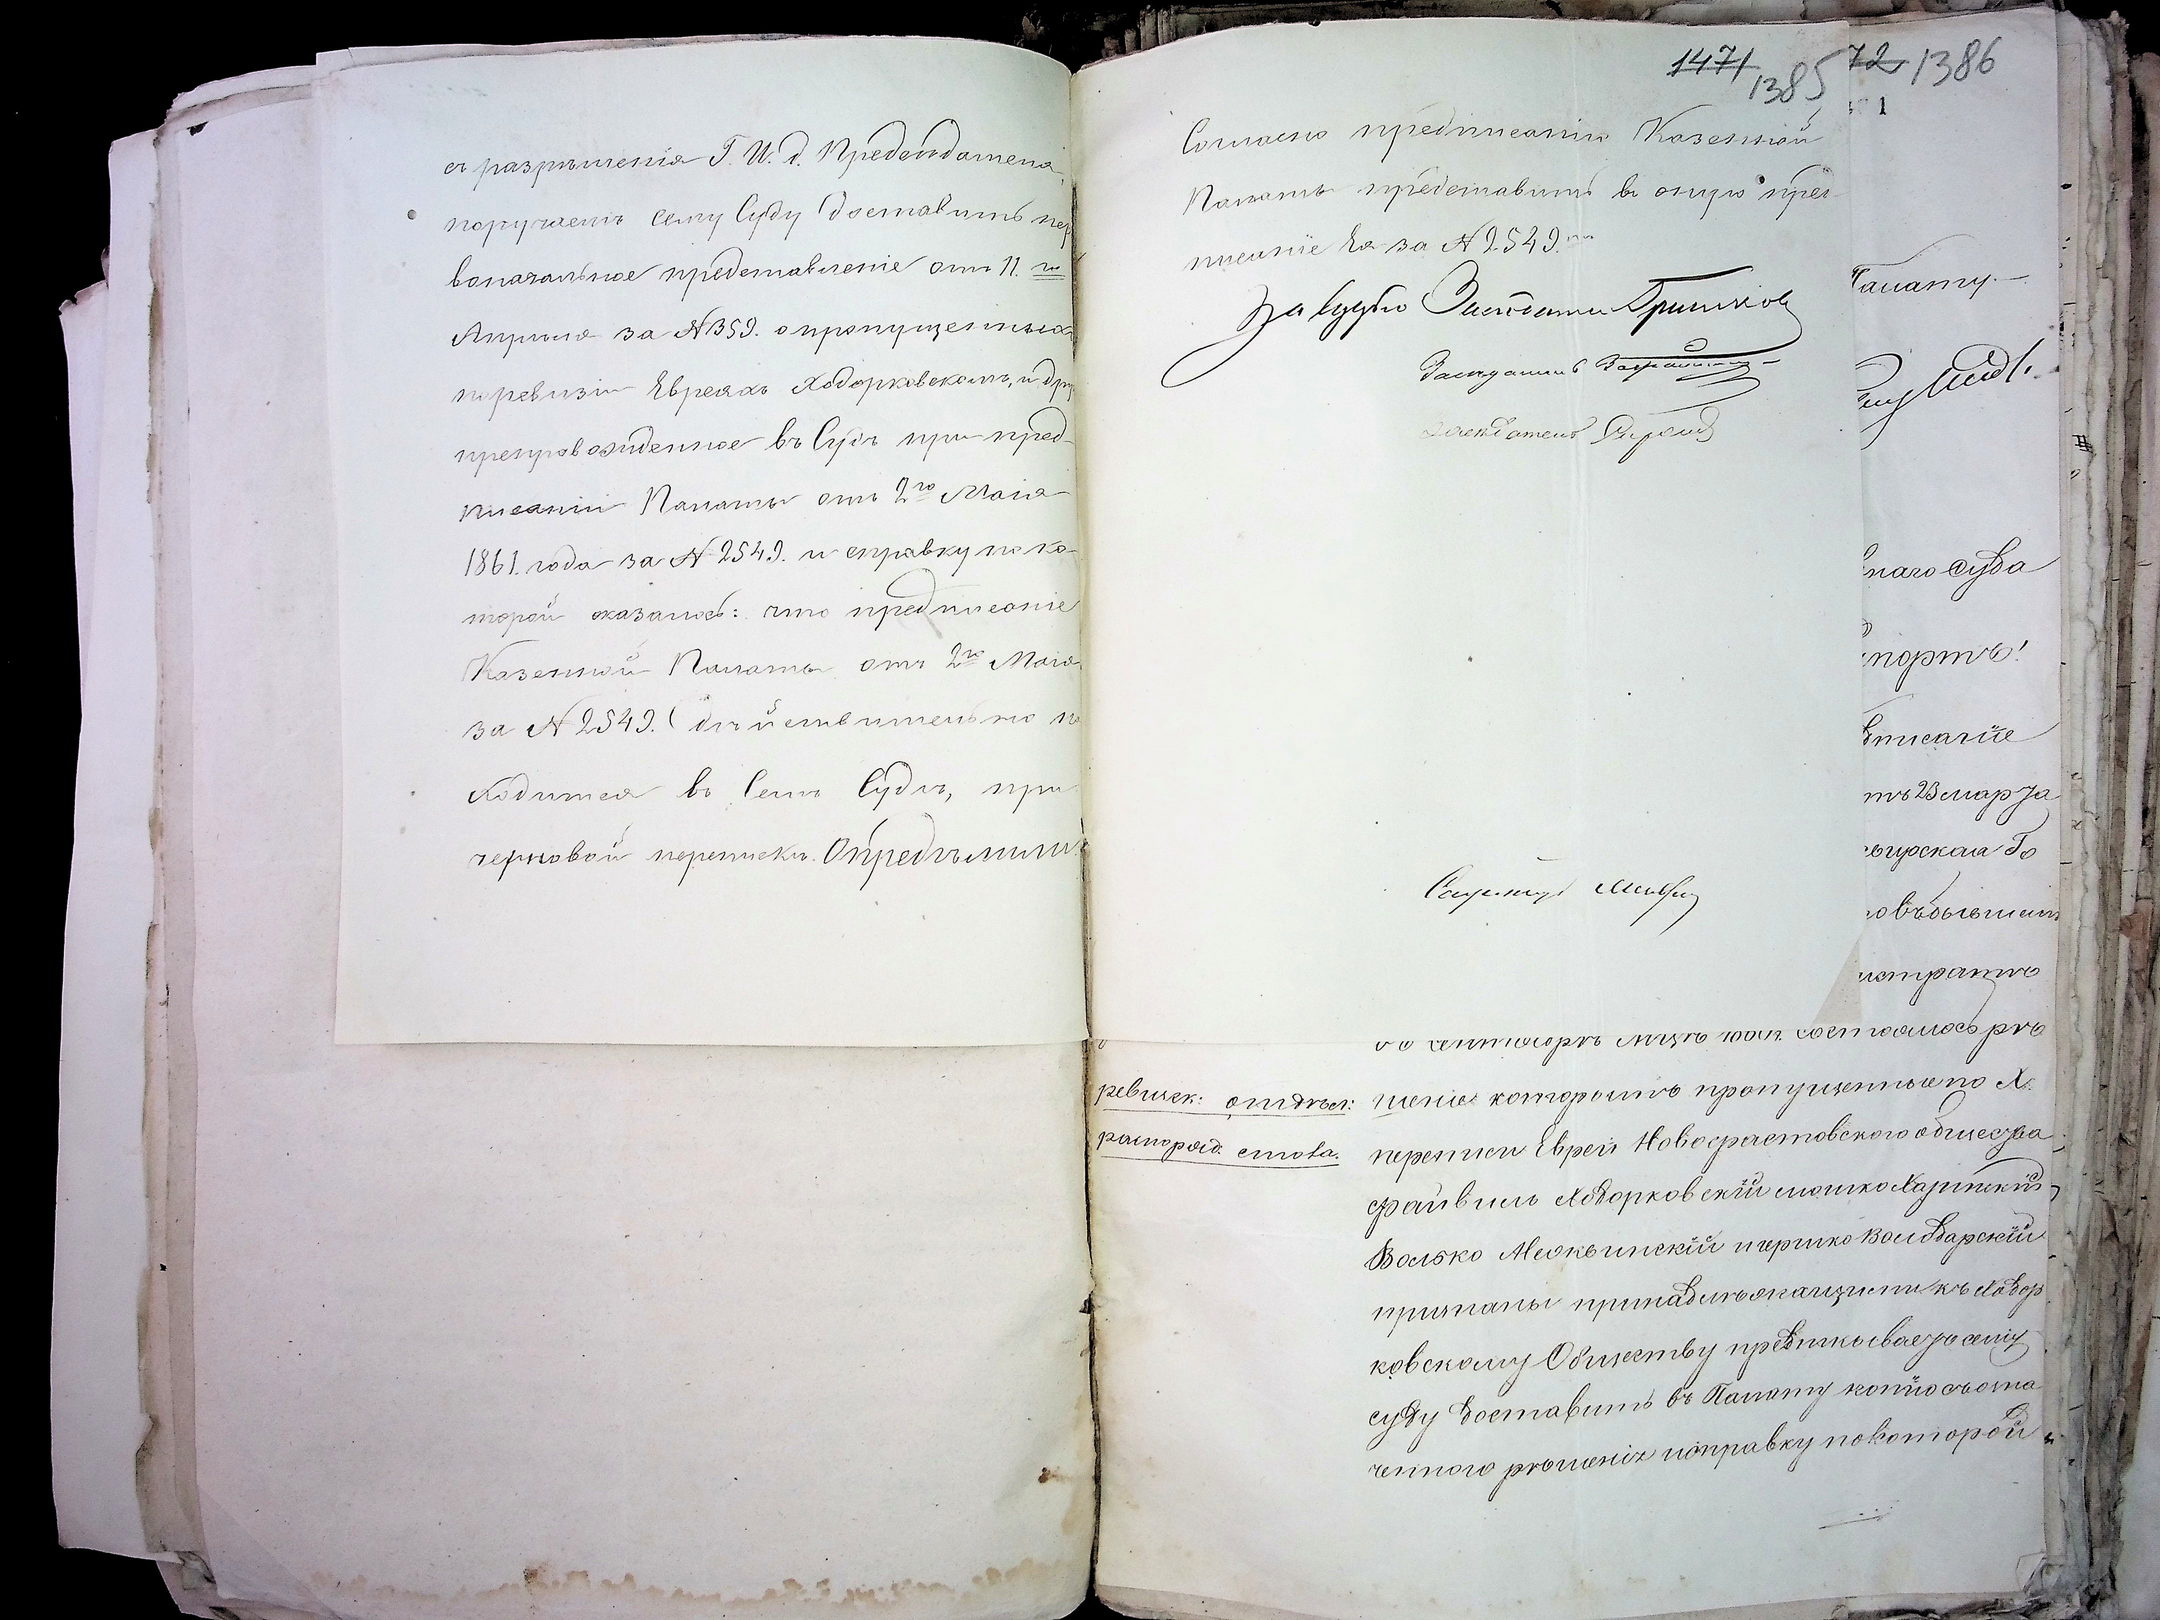 съ разрѣшенія Г. И. д. Председателя,
поручаетъ сему Суду доставить пер
воначальное представленіе отъ 11. го
Апрѣля за № 359. о пропущенныхъ
по ревизіи Евреяхъ Ходорковскомъ, и др
препровожденное въ Судъ при пред-
писаніи Палаты отъ 2го Маія
1861. года за № 2549. и справку по ко-
торой оказалось: что предписаніе
Казенной Палаты отъ 2го Маія
за № 2549. дѣйствительно на
ходится въ Семъ Судѣ, при
черновой перепискѣ. Опредѣлили:
1471 1385
72 1386
1
Согласно предписанію Казенной
Палаты представить въ оную пред
писаніе Ея за № 2549.
За Судью Засѣдатель
Засѣдатель
Засѣдатель
Секретарь
Палату.
наго суда
портъ!
дписаніе
тъ 23 марта
истратъ
состоялось рѣ
ревизск: отдѣл:
шеніе которымъ пропущенные по X.
распоряд. стола.
переписи Евреи Новофастовского общества
Файвиль Ходорковскій Мошко
Волько
признаны принадлѣжащими къ Ходор
ковскому Обществу предписываетъ сему
суду доставить въ Палату копію съ озна
ченного рѣшенія и справку по которой